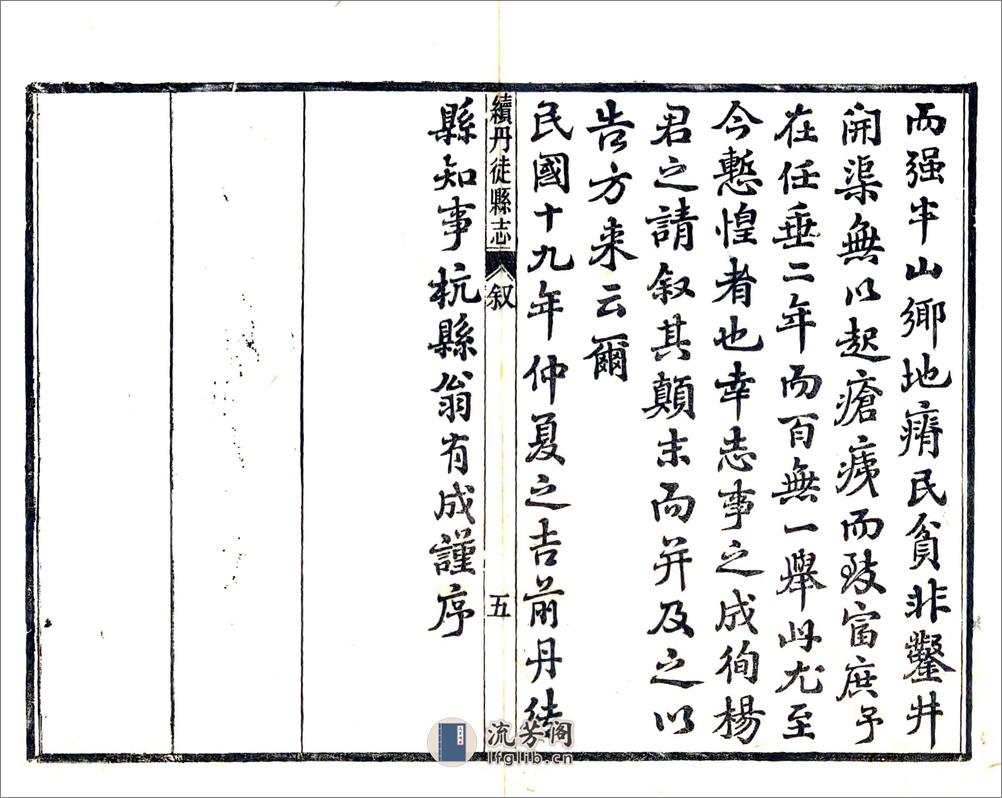 而强半山鄉地瘠民貧非鑿井
開渠無以起瘡痍而致富庶予
在任垂二年而百無一舉此尤至
今慙惶者也幸志事之成徇楊
君之請叙其顛末而并及之以
告方来云爾
民國十九年仲夏之吉前丹徒
縣知事杭縣翁有成謹序
續丹徒縣志
叙
五
流芳阁
lfglib.cn